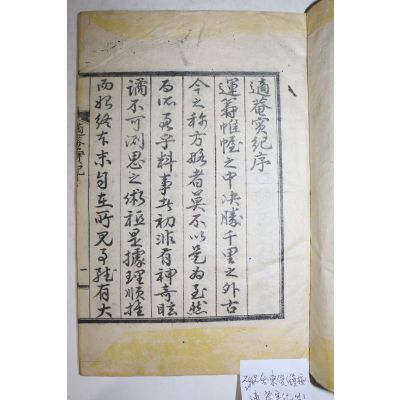 適菴實紀序
運籌帷幄之中決勝千里之外古
今之稱方略者莫不以是為至然
為兵者料事於初非有神奇眩
譎不可測思之術秪是據理順推
而始終本末自在所見耳雖有大
適菴實紀
一